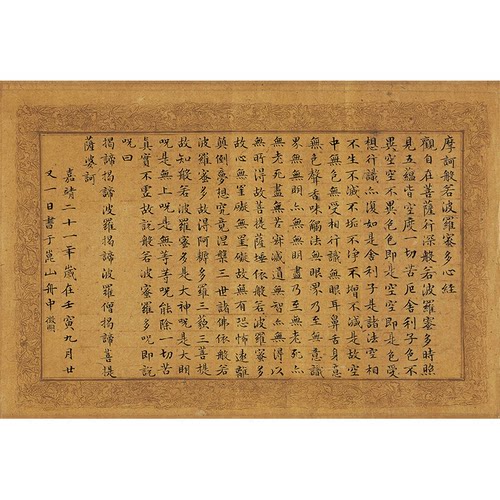 摩訶般若波羅蜜多心經
觀自在菩薩行深般若波羅蜜多時照
見五緼皆空度一切苦厄舍利子色不
異空空不異色色即是空空即是色受
想行識亦復如是舍利子是諸法空相
不生不滅不垢不淨不增不減是故空
中無色無受想行識無眼耳鼻舌身意
無色聲香味觸法無眼界乃至無意識
界無無明亦無無明盡乃至無老死亦
無老死盡無苦集滅道無智亦無得以
無所得故菩提薩埵依般若波羅蜜多
故心無罣礙無罣礙故無有恐怖遠離
顛倒夢想究竟涅槃三世諸佛依般若
波羅蜜多故得阿耨多羅三藐三菩提
故知般若波羅蜜多是大神呪是大明
呪是無上呪是無等等呪能除一切苦
真實不虛故說般若波羅蜜多呪即說
呪曰
揭諦揭諦波羅揭諦波羅僧揭諦菩提
薩婆訶
嘉靖二十一年歲在壬寅九月廿
又一日書于崑山舟中徵明